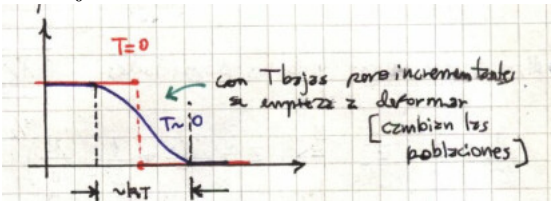 T=0
con T bajas pero incrementantes
se empieza a deformar
T~0
[cambian las
poblaciones]
~kBT